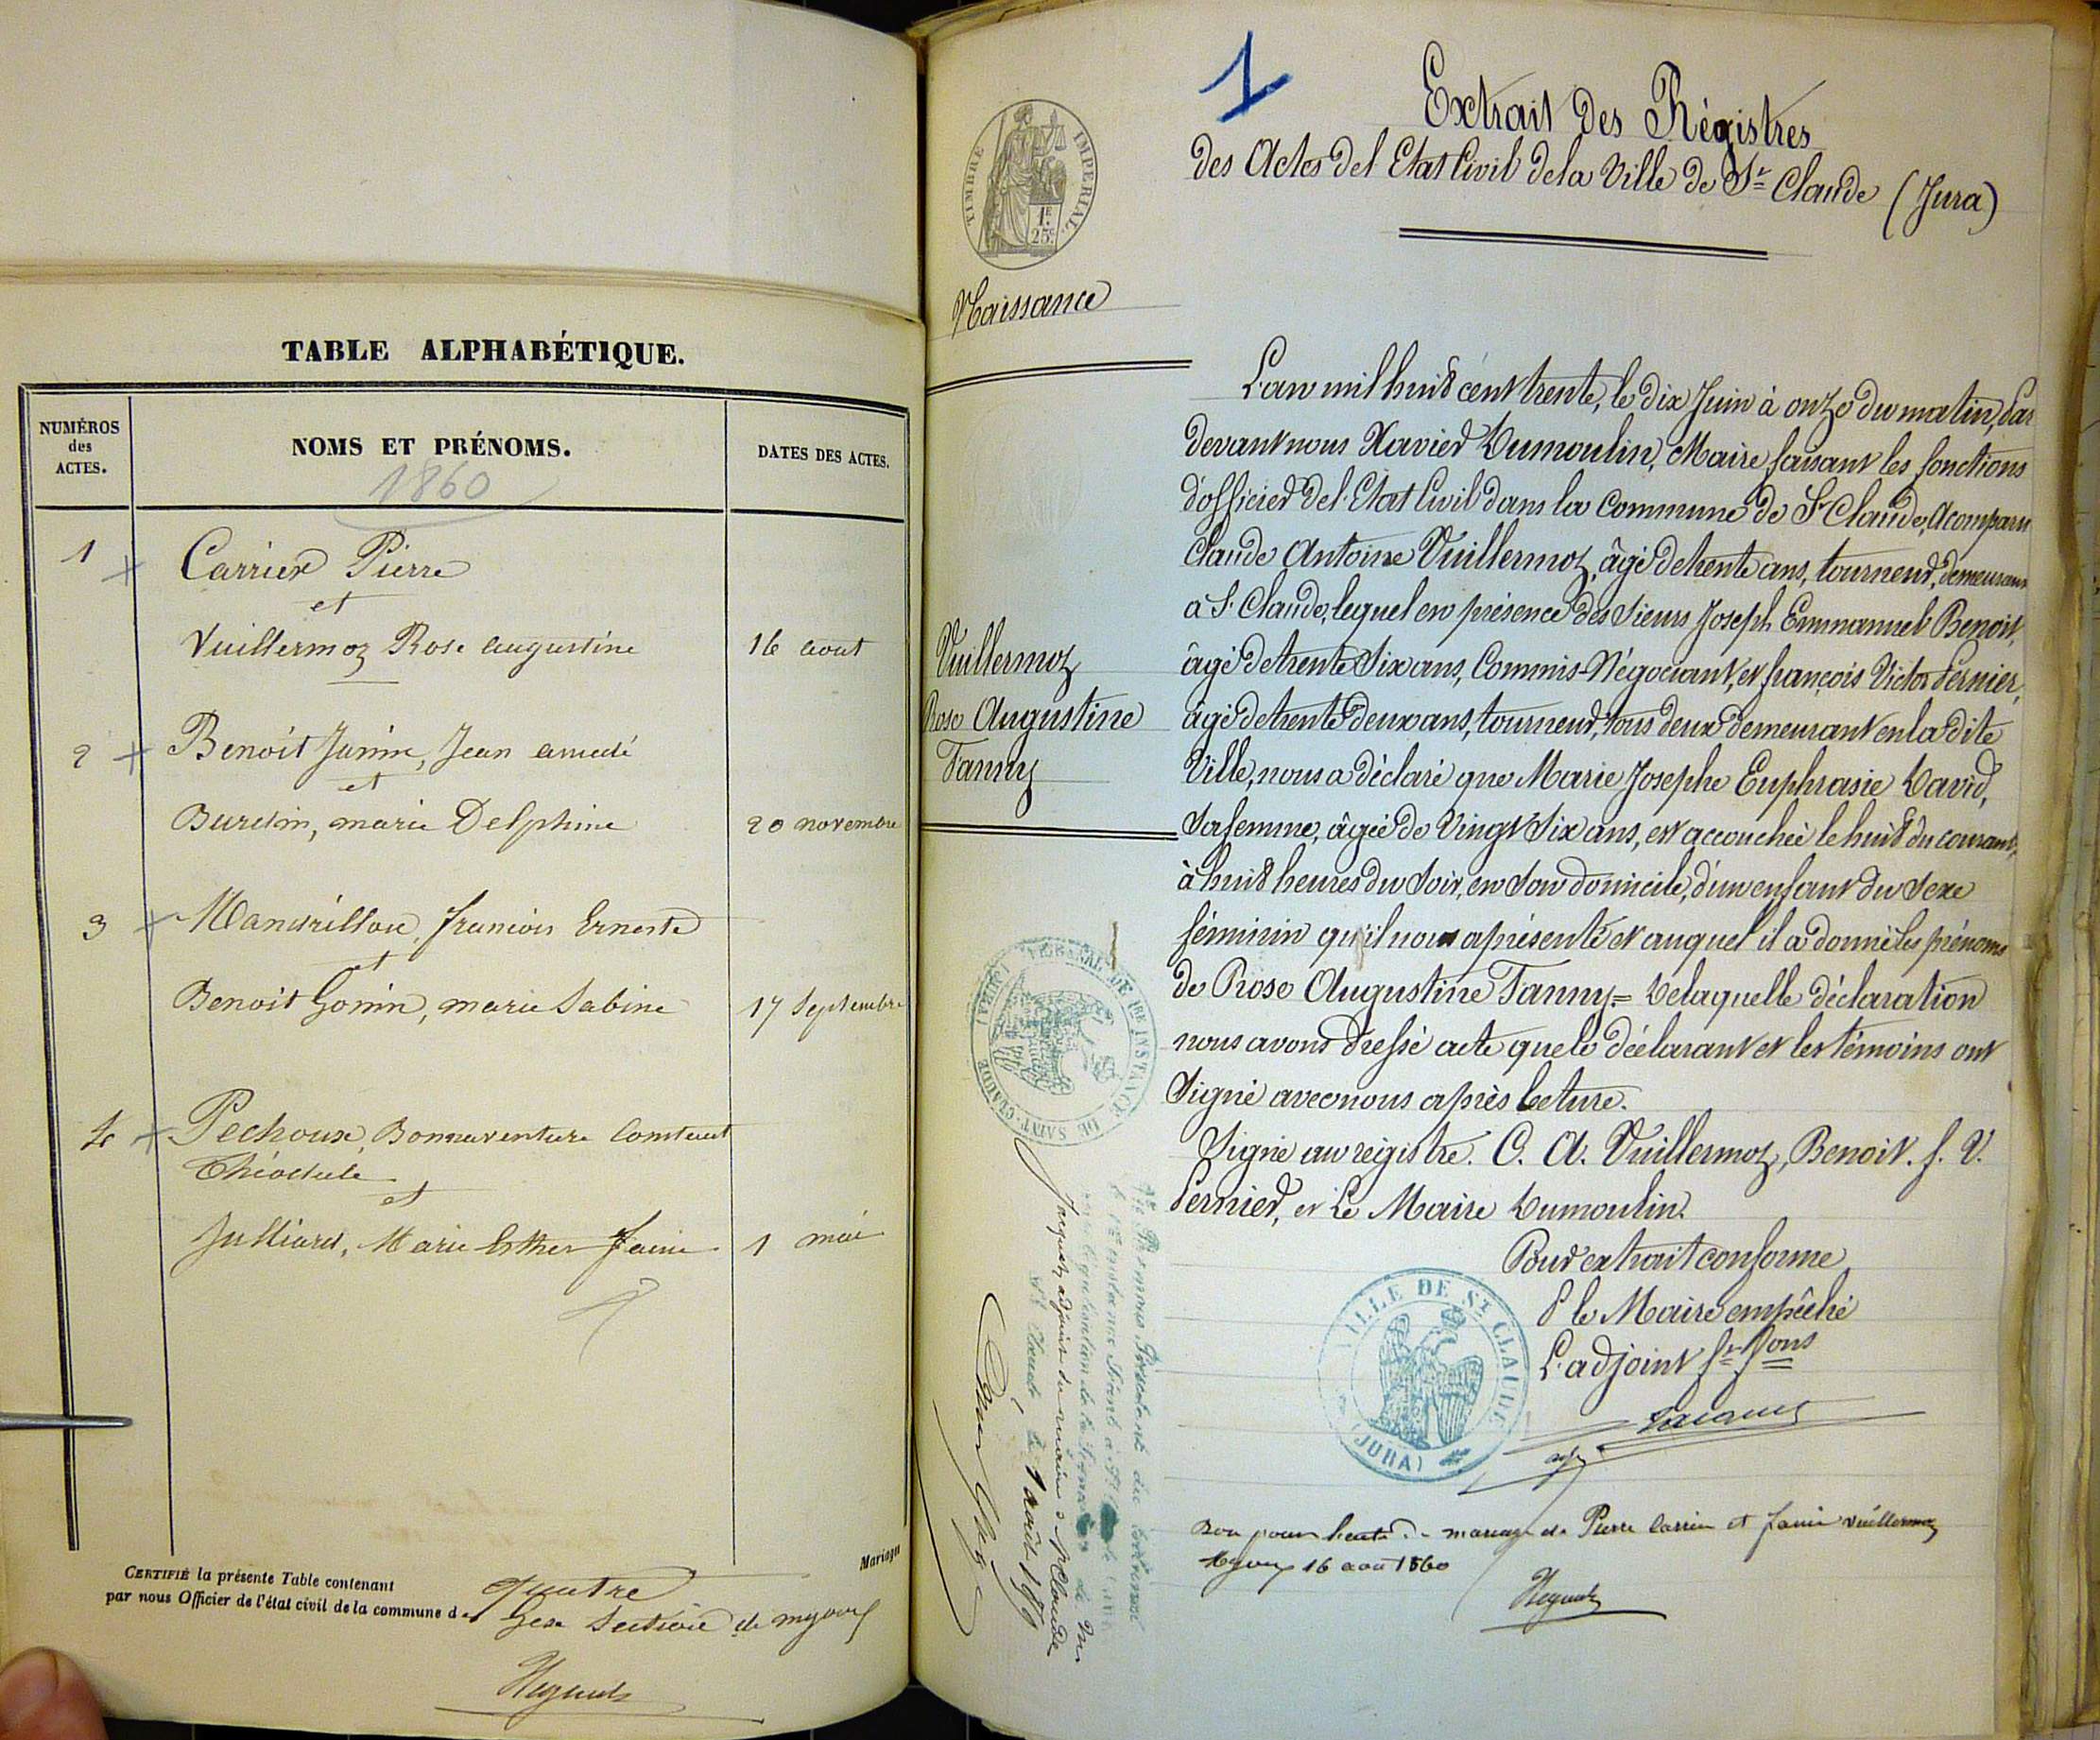 TABLE ALPHABÉTIQUE.
NUMÉROS
des
ACTES.
NOMS ET PRÉNOMS.
DATES DES ACTES.
1860
1 Carrier Pierre
et
Vuillermoz Rose augustine 16 aout
2 Benoit Janin, Jean amedé
et
Burdin, marie Delphine 20 novembre
3 Mandrillon, francois Erneste
et
Benoit Gonin, marie Sabine 17 Septembre
4 Pechoux, Bonnaventure Constant
Théodule
et
Julliard, Marie Esther 1 mai
CERTIFIÉ la présente Table contenant quatre Mariages
par nous Officier de l'état civil de la commune de Gex Section de
1
Extrait des Régistres
des Actes del Etat Civil dela Ville de St Claude (Jura)
TIMBRE IMPERIAL
1F.
25c.
Naissance
L'an mil huit cent trente, le dix Juin à onze du matin, Par
devant nous Xavier Dumoulin, Maire faisant les fonctions
d'officier del'Etat Civil dans la Commune de St Claude, Acomparu
Claude Antoine Vuillermoz, âgé detrente ans, tourneur, demeurant
a St Claude, lequel en présence des Sieurs Joseph Emmanuel Benoit,
âgé detrente Six ans, Commis-Négociant, et françois Victor Pernier,
âgé detrente deux ans, tourneur, tous deux demeurant enla dite
Ville, nous a déclaré que Marie Josephe Euphrasie David,
Sa femme, âgée de Vingt Six ans, est accouchée le huit du courant,
à huit heures du Soir, en Son domicile, d'un enfant du Sexe
féminin qu'il nous aprésenté et auquel il a donné les prénoms
de Rose Augustine Fanny = Delaquelle déclaration
nous avons dressé acte que le déclarant et les témoins ont
Signé avec nous après lecture.
Signé au régistre. C. A. Vuillermoz, Benoit. f. V.
Pernier, et Le Maire Dumoulin.
Vuillermoz
Rose Augustine
Fanny
Pour extrait conforme
P le Maire empêché
L'adjoint fs fons
VILLE DE ST CLAUDE
(JURA)
TRIBUNAL DE 1RE INSTANCE DE SAINT-CLAUDE (JURA)
Jacquet, adjoint du maire à St Claude
St Claude le 1 août
mariage de Pierre Carrier et fanie Vuillermoz
16 aout 1860